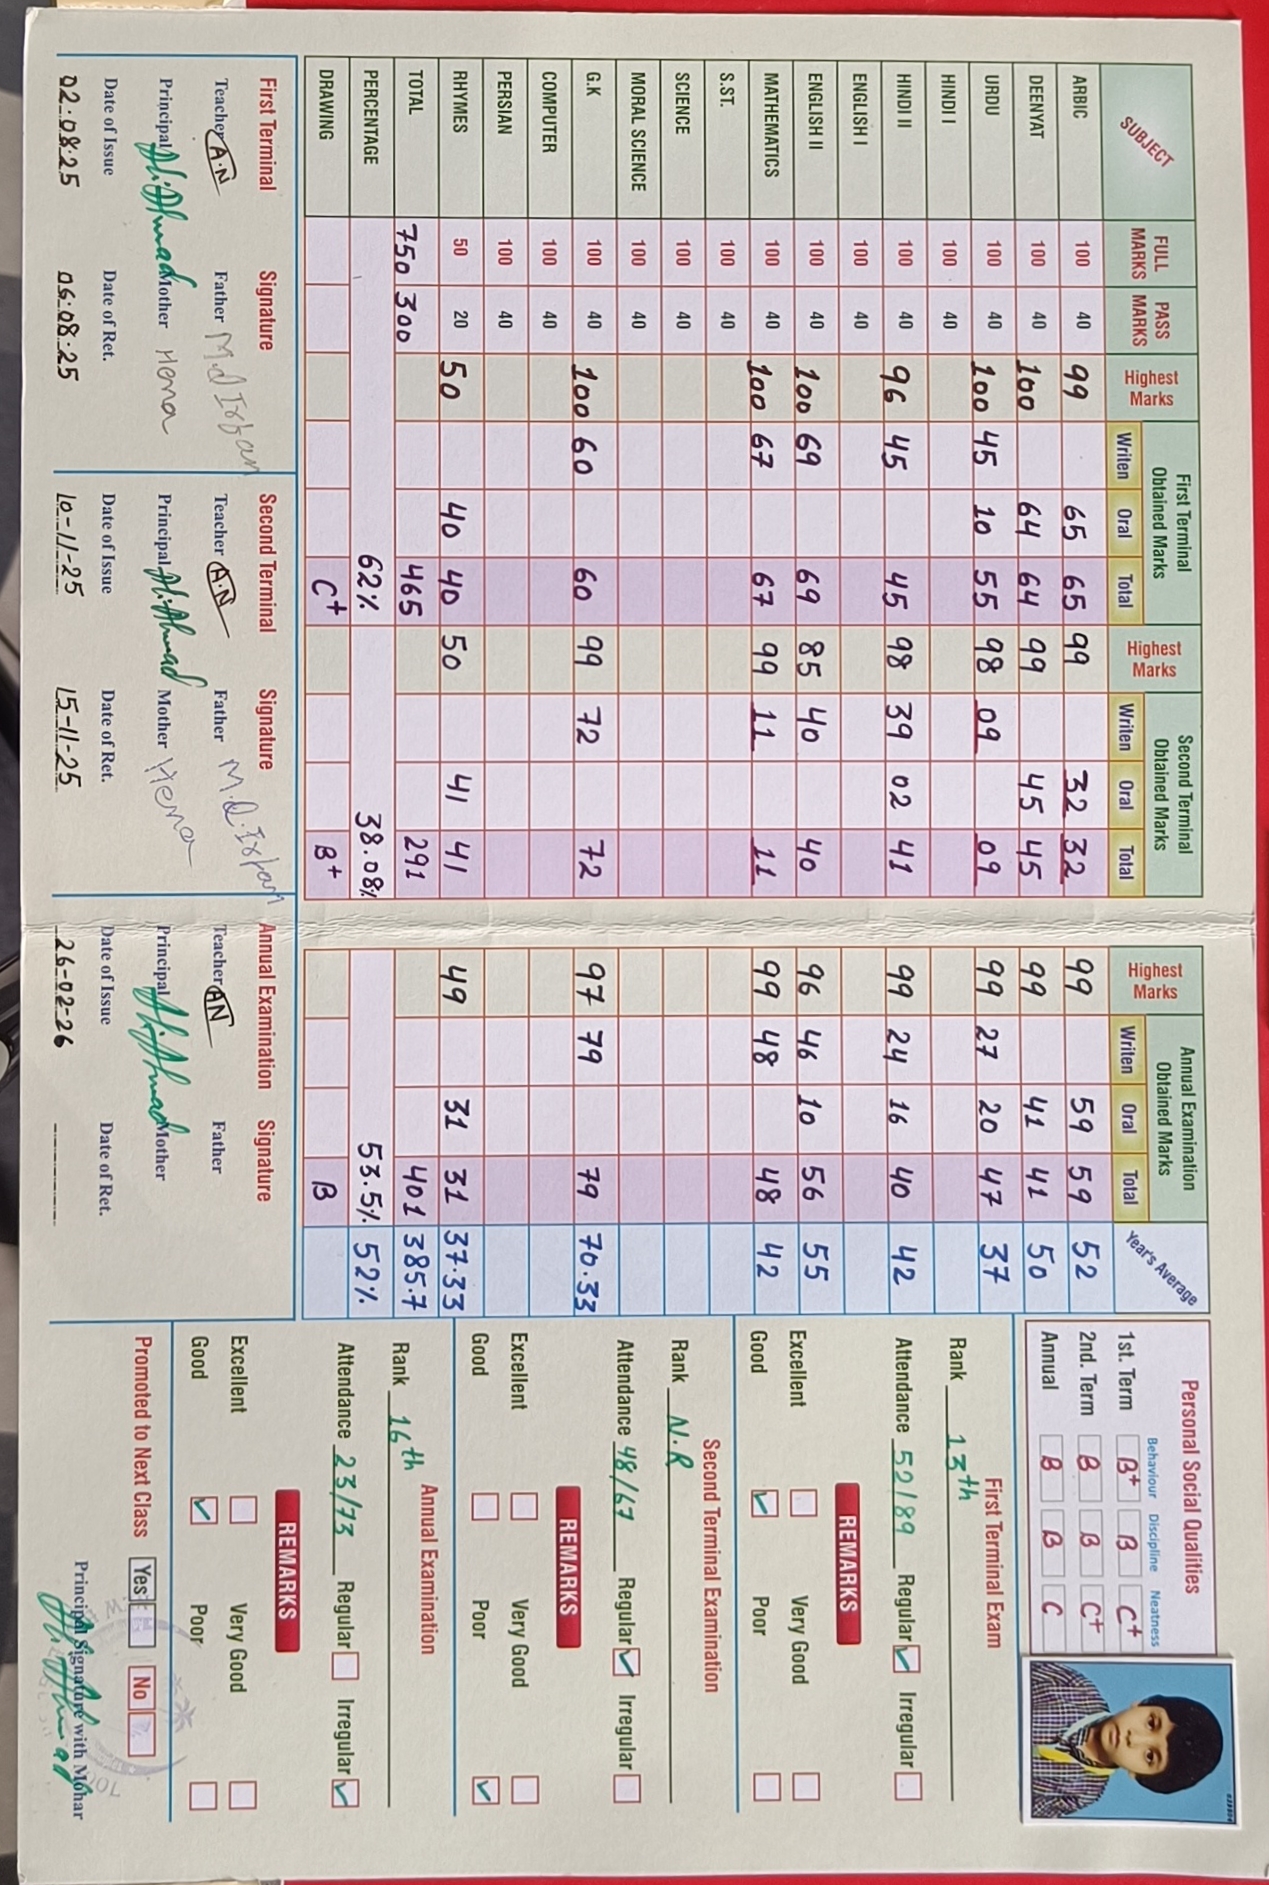 SUBJECT FULL MARKS PASS MARKS Highest Marks First Terminal Obtained Marks Writen Oral Total Highest Marks Second Terminal Obtained Marks Writen Oral Total Highest Marks Annual Examination Obtained Marks Writen Oral Total Year's Average
ARBIC 100 40 99 65 65 99 32 32 99 59 59 52
DEENYAT 100 40 100 64 64 99 45 45 99 41 41 50
URDU 100 40 100 45 10 55 98 09 09 99 27 20 47 37
HINDI I 100 40
HINDI II 100 40 96 45 45 98 39 02 41 99 24 16 40 42
ENGLISH I 100 40
ENGLISH II 100 40 100 69 69 85 40 40 96 46 10 56 55
MATHEMATICS 100 40 100 67 67 99 11 11 99 48 48 42
S.ST. 100 40
SCIENCE 100 40
MORAL SCIENCE 100 40
G.K 100 40 100 60 60 99 72 72 97 79 79 70.33
COMPUTER 100 40
PERSIAN 100 40
RHYMES 50 20 50 40 40 50 41 41 49 31 31 37.33
TOTAL 750 300 465 291 401 385.7
PERCENTAGE 62% 38.08% 53.5% 52%
DRAWING C+ B+ B
First Terminal Signature
Teacher A.N Father M.d Irfan
Principal Ali Ahmad Mother Hena
Date of Issue Date of Ret.
02.08.25 06.08.25
Second Terminal Signature
Teacher A.N Father M.d. Irfan
Principal Ali Ahmad Mother Hena
Date of Issue Date of Ret.
10-11-25 15-11-25
Annual Examination Signature
Teacher AN Father
Principal Ali Ahmad Mother
Date of Issue Date of Ret.
26-02-26
Personal Social Qualities
Behaviour Discipline Neatness
1st. Term B+ B C+
2nd. Term B B C+
Annual B B C
First Terminal Exam
Rank 13th
Attendance 52/89 Regular Irregular
REMARKS
Excellent Very Good
Good Poor
Second Terminal Examination
Rank N.R
Attendance 48/67 Regular Irregular
REMARKS
Excellent Very Good
Good Poor
Annual Examination
Rank 16th
Attendance 23/73 Regular Irregular
REMARKS
Excellent Very Good
Good Poor
Promoted to Next Class Yes No
Principal Signature with Mohar
Ali Ahmad